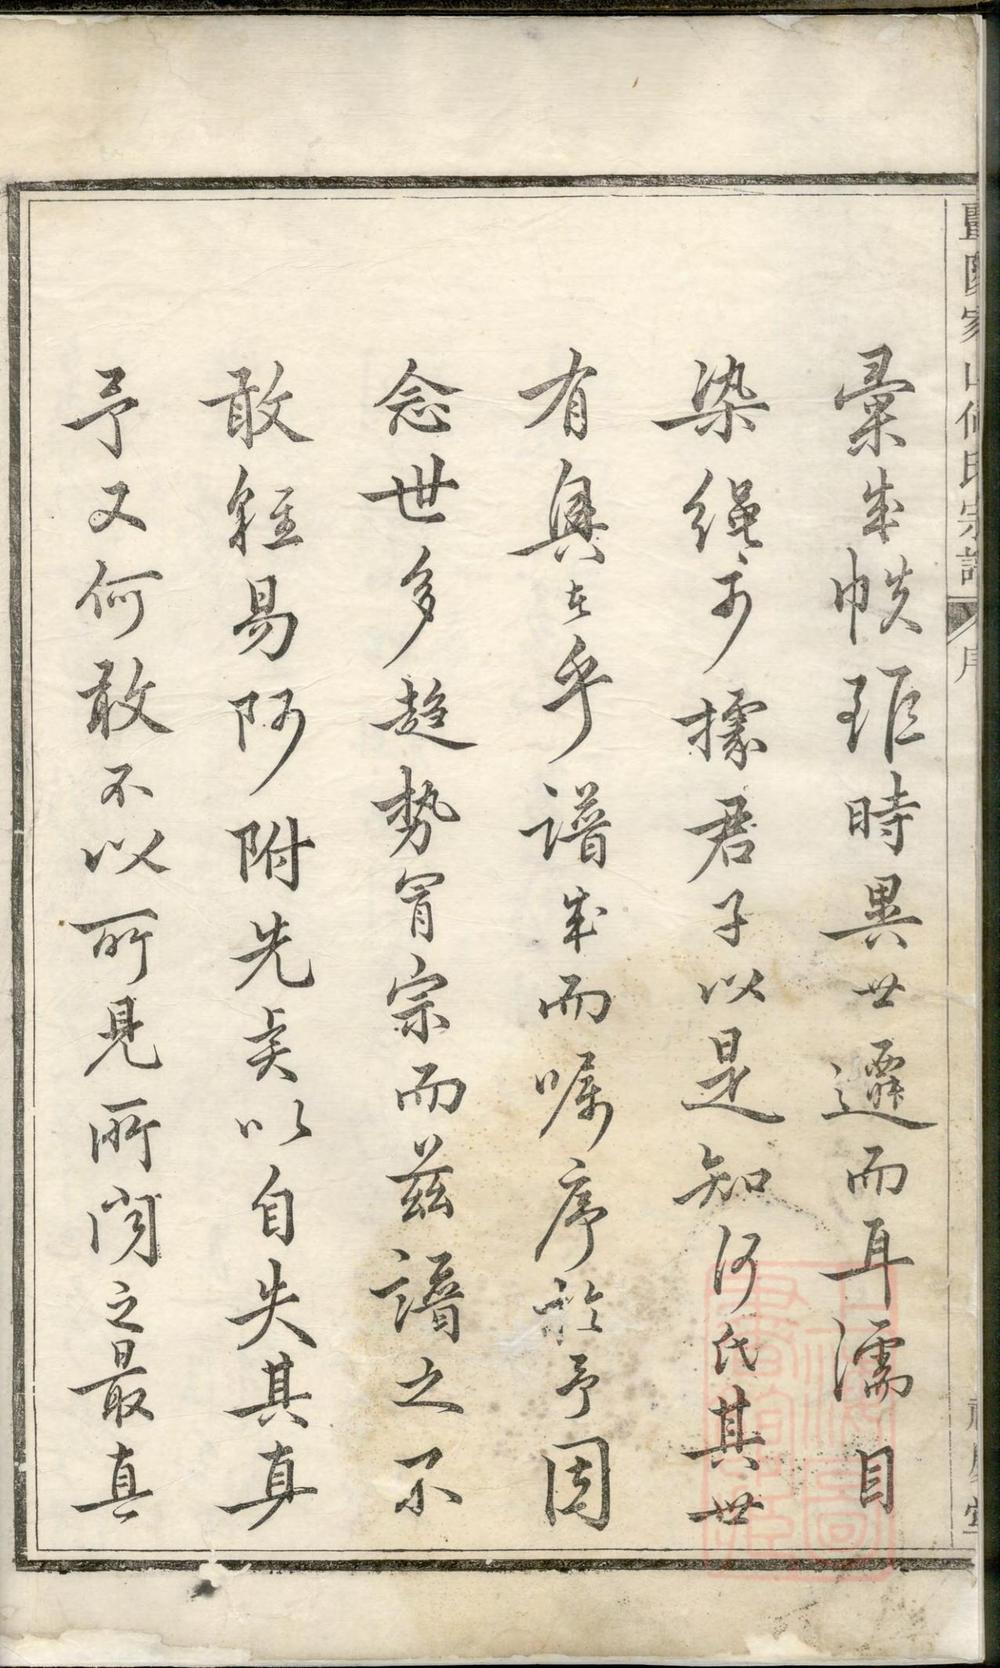 彚成帙距時異世遷而耳濡目
染繩可據君子以是知何氏其世
有興者乎譜成而嘱序於予因
念世多趨勢冒宗而兹譜之不
敢輕易阿附先矣以自失其真
予又何敢不以所見所聞之最真